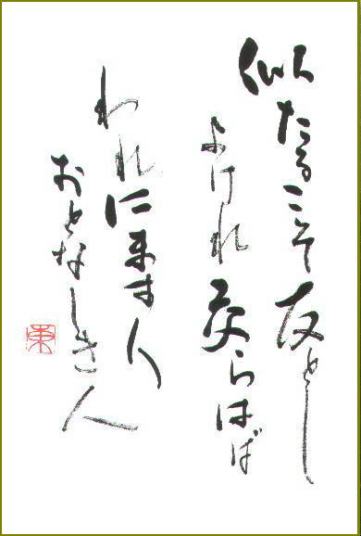 似たるこそ友とし
よけれ交らはば
われにます人
おとなしき人
東